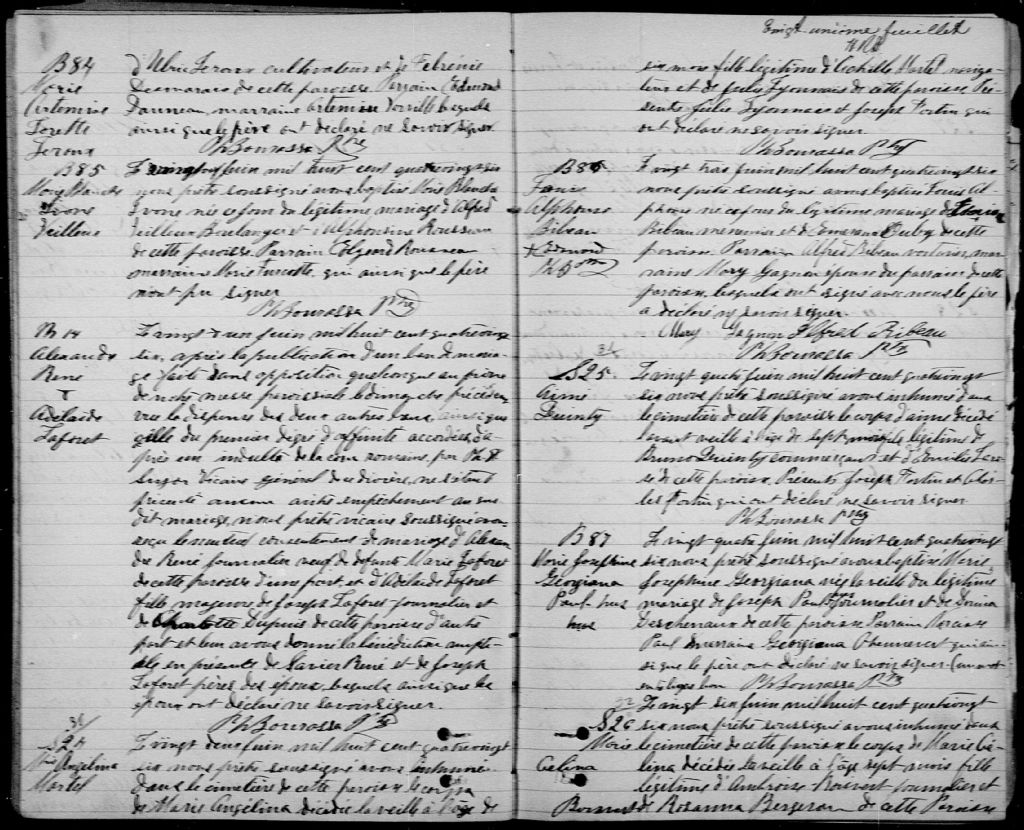 Vingt unième feuillet
B84
Marie
Artemise
Leroux
d'Ulric Leroux cultivateur et de
Desmarais de cette paroisse. Parrain Edmond
marraine Artemise lesquels
ainsi que le père ont déclaré ne savoir signer
Ph Bourassa Ptre
B85
Mary Blanche
Ivone
Veilleux
Le vingt Juin mil huit cent quatrevingt six
nous prêtre soussigné avons baptisé Marie Blanche
Ivone née ce jour du légitime mariage d'Alfred
Veilleux Boulanger et d'Alphonsine Rousseau
de cette paroisse. Parrain Edgeard Rousseau
marraine Marie Turcotte, qui ainsi que le père
n'ont pu signer
Ph Bourassa Ptre
M 14
Alexandre
René
&
Adelaide
Laforet
Le vingt & un Juin mil huit cent quatrevingt
six, après la publication d'un ban de maria-
ge faite sans opposition quelconque au prône
de notre messe paroissiale le dimanche précédent
vu la dispense des deux autres bans ainsi que
celle du premier degré d'affinité accordée, d'a-
près un indulte de la cour romaine, par
Vicaire Général des diocèse, ne s'étant
présenté aucun autre empêchement au sus-
dit mariage, nous prêtre vicaire soussigné avons
reçu le mutuel consentement de mariage d'Alexan-
dre René journalier veuf de défunte Marie Laforet
de cette paroisse d'une part, et d'Adelaide Laforet
fille majeure de Joseph Laforet journalier et
de Charlotte Dupuis de cette paroisse d'autre
part et leur avons donné la bénédiction nupti-
ale en présence de Xavier René et de Joseph
Laforet pères des époux, lesquels ainsi que les
époux ont déclaré ne savoir signer.
Ph Bourassa Ptre
S24
Angelina
Martel
Le vingt deux Juin mil huit cent quatrevingt
six nous prêtre soussigné avons inhumé
dans le cimetière de cette paroisse le corps
de Marie Angelina décédée la veille à l'âge de
six mois fille légitime d'Achille Martel naviga-
teur et de Julie Lyonnais de cette paroisse Pré-
sents Julie Lyonnais et Joseph Fortin qui
ont déclaré ne savoir signer.
Ph Bourassa Ptre
B86
Alphonse
Bibeau
Le vingt trois Juin mil huit cent quatrevingt six
nous prêtre soussigné avons baptisé Al-
phonse né ce jour du légitime mariage d'
Bibeau menuisier et d' de cette
paroisse. Parrain Alfred Bibeau voiturier, mar-
raine Mary Gagnon épouse du parrain de cette
paroisse, lesquels ont signé avec nous le père
a déclaré ne savoir signer.
Mary Gagnon Alfred Bibeau
Ph Bourassa Ptre
S25
Aimé
Quinty
Le vingt quatre Juin mil huit cent quatrevingt
six nous prêtre soussigné avons inhumé dans
le cimetière de cette paroisse le corps d'Aimé décédé
l'avant veille à l'âge de sept mois fils légitime de
Bruno Quinty commerçant et d'Emilie
de cette paroisse. Présents Joseph Fortin et Char-
les Fortin qui ont déclaré ne savoir signer
Ph Bourassa Ptre
B87
Marie Josephine
Georgiana
Paul
Le vingt quatre Juin mil huit cent quatrevingt
six nous prêtre soussigné avons baptisé Marie
Josephine Georgiana née la veille du légitime
mariage de Joseph Paul journalier et de
Deschenaux de cette paroisse Parrain Narcisse
Paul marraine Georgiana qui ain-
si que le père ont déclaré ne savoir signer.
Ph Bourassa Ptre
S26
Marie
Celina
Le vingt six Juin mil huit cent quatrevingt
six nous prêtre soussigné avons inhumé dans
le cimetière de cette paroisse le corps de Marie Cé-
lina décédée la veille à l'âge sept mois fille
légitime d'Ambroise journalier et
de Rosanna Bergeron de cette Paroisse